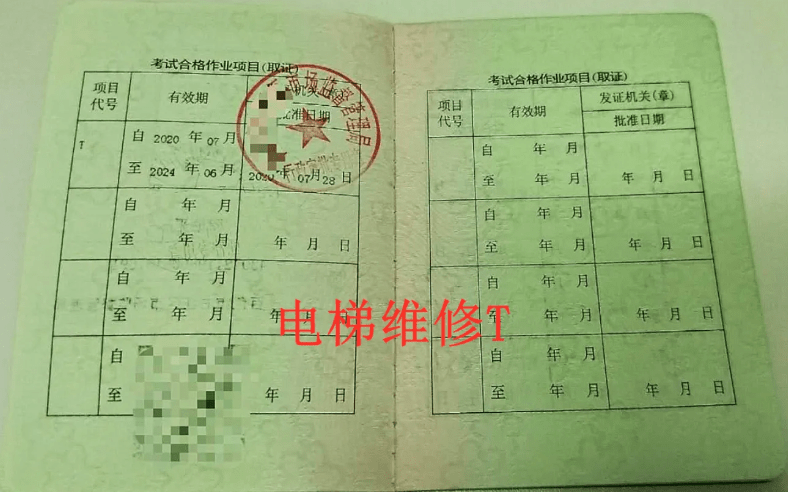 考试合格作业项目(取证)
项目代号
有效期
批准日期
市场监督管理局
T
自 2020 年 07 月
至 2024 年 06 月
2020 年 07 月 28 日
自 年 月
至 年 月
年 月 日
自 年 月
至 年 月
年 月 日
自
至
年 月 日
考试合格作业项目(取证)
项目代号
有效期
发证机关(章)
批准日期
自 年 月
至 年 月
年 月 日
自 年 月
至 年 月
年 月 日
自 年 月
至 年 月
年 月 日
自 年 月
至 年 月
年 月 日
电梯维修T